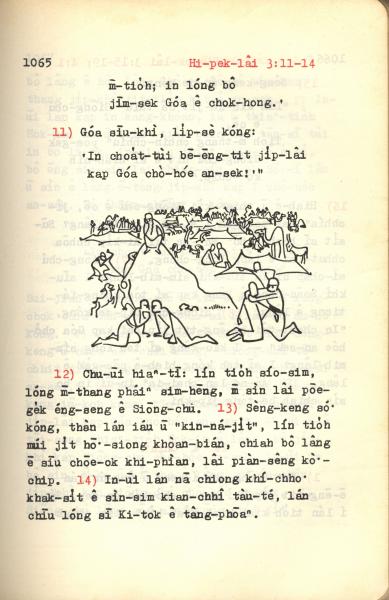 1065
Hi-pek-lâi 3:11-14
m̄-tio̍h; in lóng bô
jīm-sek Góa ê chok-hong.'
11) Góa sīu-khì, li̍p-sè kóng:
'In choa̍t-tùi bē-ēng-tit ji̍p-lâi
kap Góa chò-hóe an-sek!'"
12) Chu-ūi hiaⁿ-tī: lín tio̍h sío-sim,
lóng m̄-thang pháiⁿ sim-hēng, m̄ sìn lâi pōe-
ge̍k éng-seng ê Siōng-chú. 13) Sèng-keng só͘
kóng, thèn lán iáu ū "kin-ná-ji̍t", lín tio̍h
múi ji̍t hō͘-siong khòan-bián, chiah bô lâng
ē sīu chōe-ok khi-phìan, lâi piàn-sêng kò͘-
chip. 14) In-ūi lán nā chiong khí-chho͘
khak-si̍t ê sìn-sim kian-chhî tàu-té, lán
chīu lóng sī Ki-tok ê tâng-phōaⁿ.